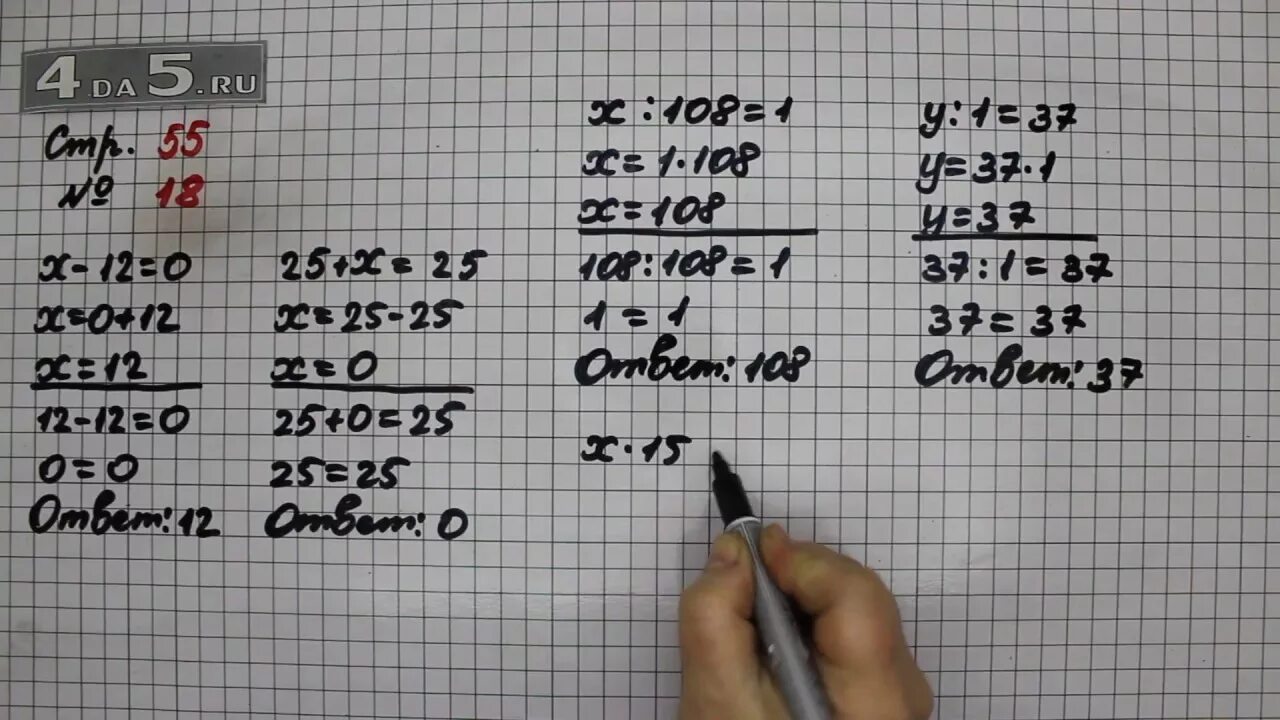 4DA5.RU
Стр. 55
№ 18
x - 12 = 0
x = 0 + 12
x = 12
12 - 12 = 0
0 = 0
Ответ: 12
25 + x = 25
x = 25 - 25
x = 0
25 + 0 = 25
25 = 25
Ответ: 0
x : 108 = 1
x = 1 · 108
x = 108
108 : 108 = 1
1 = 1
Ответ: 108
x · 15
y : 1 = 37
y = 37 · 1
y = 37
37 : 1 = 37
37 = 37
Ответ: 37